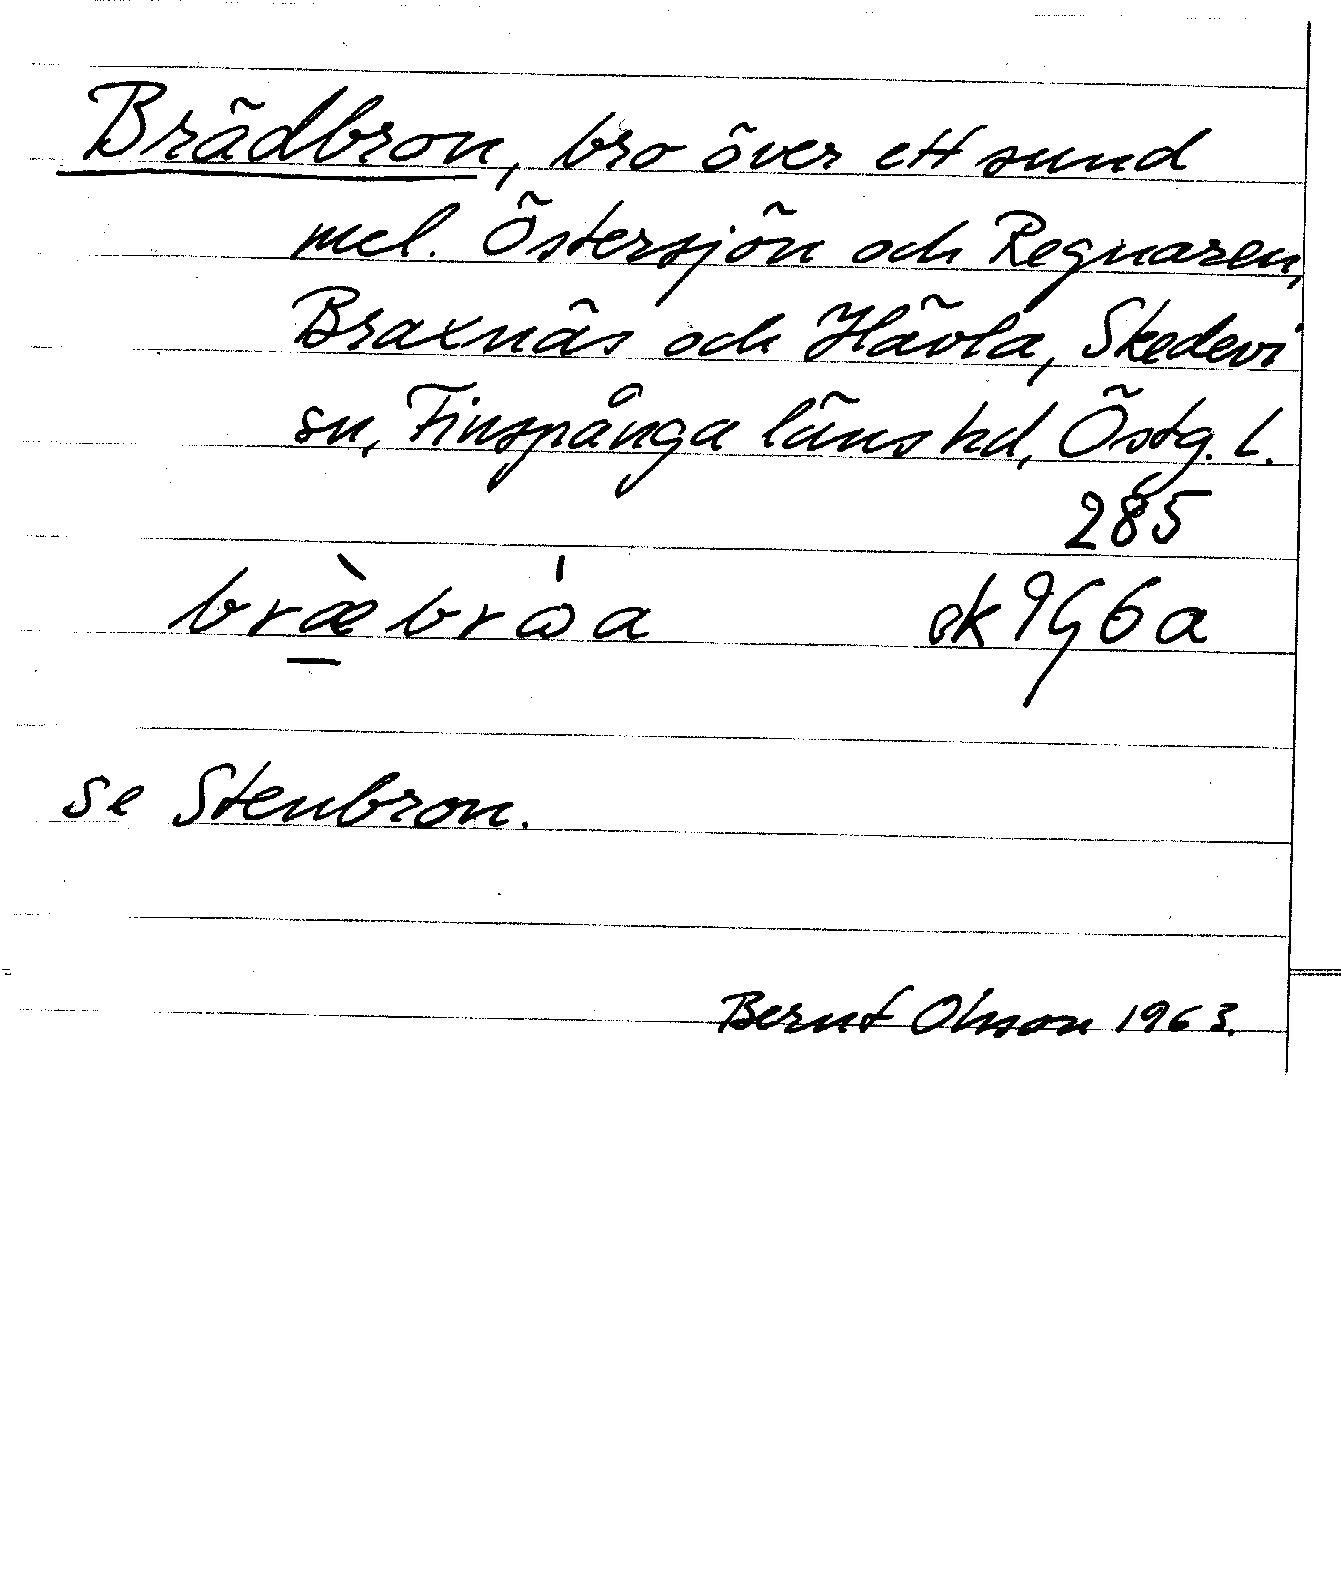 Brädbron, bro över ett sund
mel. Östersjön och Regnaren,
Braxnäs och Hävla, Skedevi
sn, Finspånga läns hd, Östg. l.
285
bræ̀brώa ek 9G6a
se Stenbron.
Bernt Olsson 1963.